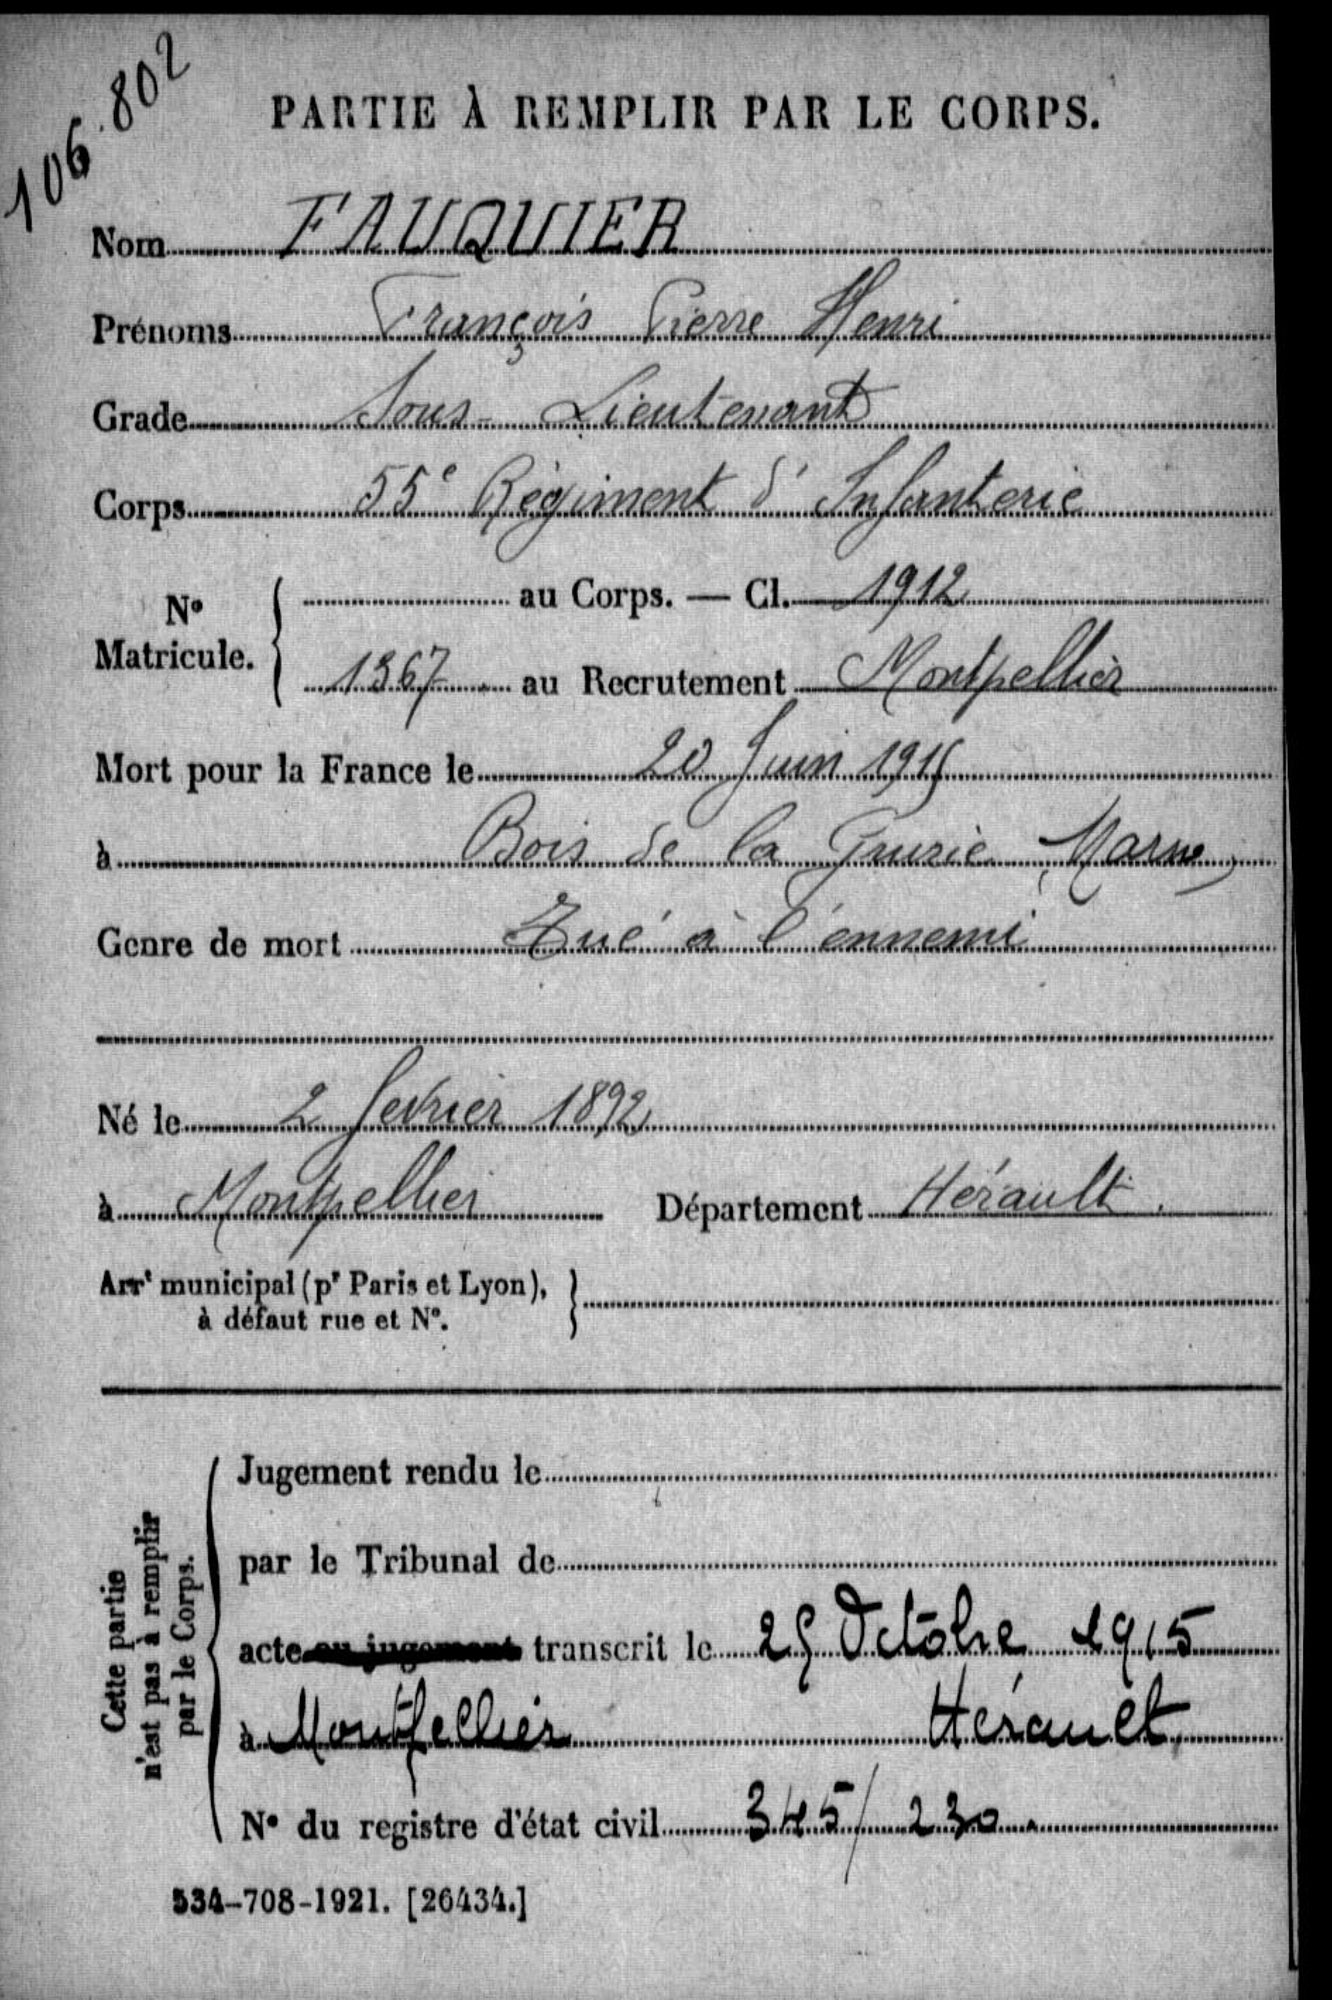 106.802
PARTIE À REMPLIR PAR LE CORPS.
Nom FAUQUIER
Prénoms François Pierre Henri
Grade Sous-Lieutenant
Corps 55e Régiment d'Infanterie
No Matricule. { au Corps. — Cl. 1912
1367 au Recrutement Montpellier
Mort pour la France le 20 Juin 1915
à Bois de la Grurie (Marne)
Genre de mort Tué à l'ennemi
Né le 2 fevrier 1892
à Montpellier Département Hérault.
Arrt municipal (pr Paris et Lyon), }
à défaut rue et No.
Cette partie
n'est pas à remplir
par le Corps.
Jugement rendu le
par le Tribunal de
acte ou jugement transcrit le 25 Octobre 1915
à Montpellier Hérault
No du registre d'état civil 345/230.
534-708-1921. [26434.]